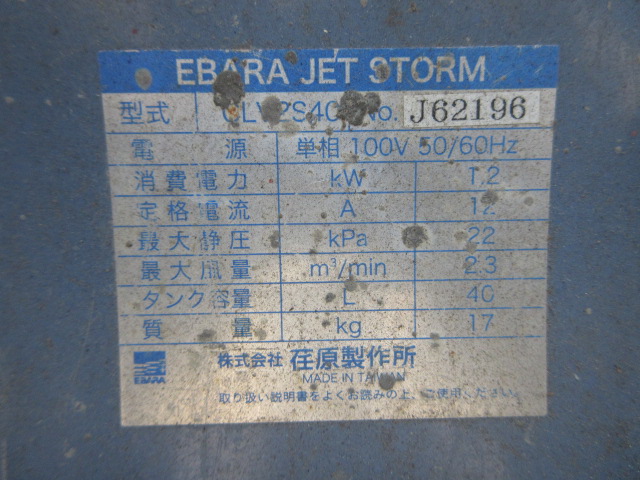 EBARA JET STORM
型式 No. J62196
電源 単相 100V 50/60Hz
消費電力 kW 1.2
定格電流 A 12
最大静圧 kPa 22
最大風量 m³/min 2.3
タンク容量 L 40
質量 kg 17
株式会社 荏原製作所
MADE IN TAIWAN
取り扱い説明書をよくお読みの上、ご使用、ください。